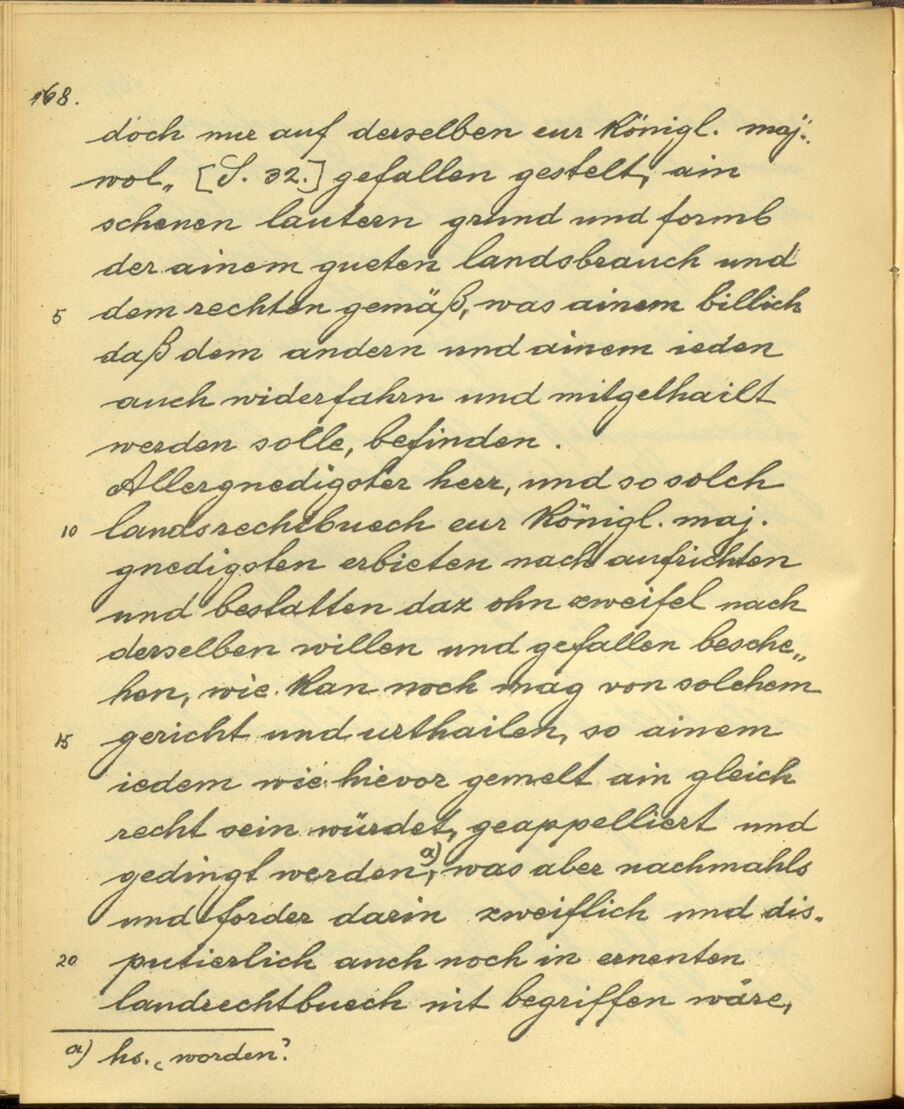 168.
doch nur auf derselben eur königl. maj.
wol„ [S. 32.] gefallen gestelt, ain
schenen lautern grund und formb
der ainem gueten landsbrauch und
5 dem rechten gemäß, was ainem billich
daß dem andern und ainem ieden
auch widerfahrn und mitgethailt
werden solle, befinden.
Allergnedigster herr, und so solch
10 landsrechtbuech eur königl. maj.
gnedigsten erbieten nach aufrichten
und bestatten daz ohn zweifel nach
derselben willen und gefallen besche„
hen, wie kan noch mag von solchem
15 gericht und urthailen, so ainem
iedem wie hievor gemelt ain gleich
recht sein würdet, geappelliert und
gedingt werden a), was aber nachmahls
und forder darin zweiflich und dis-
20 putierlich auch noch in ernenten
landrechtbuech nit begriffen wäre,
a) hs. „worden?